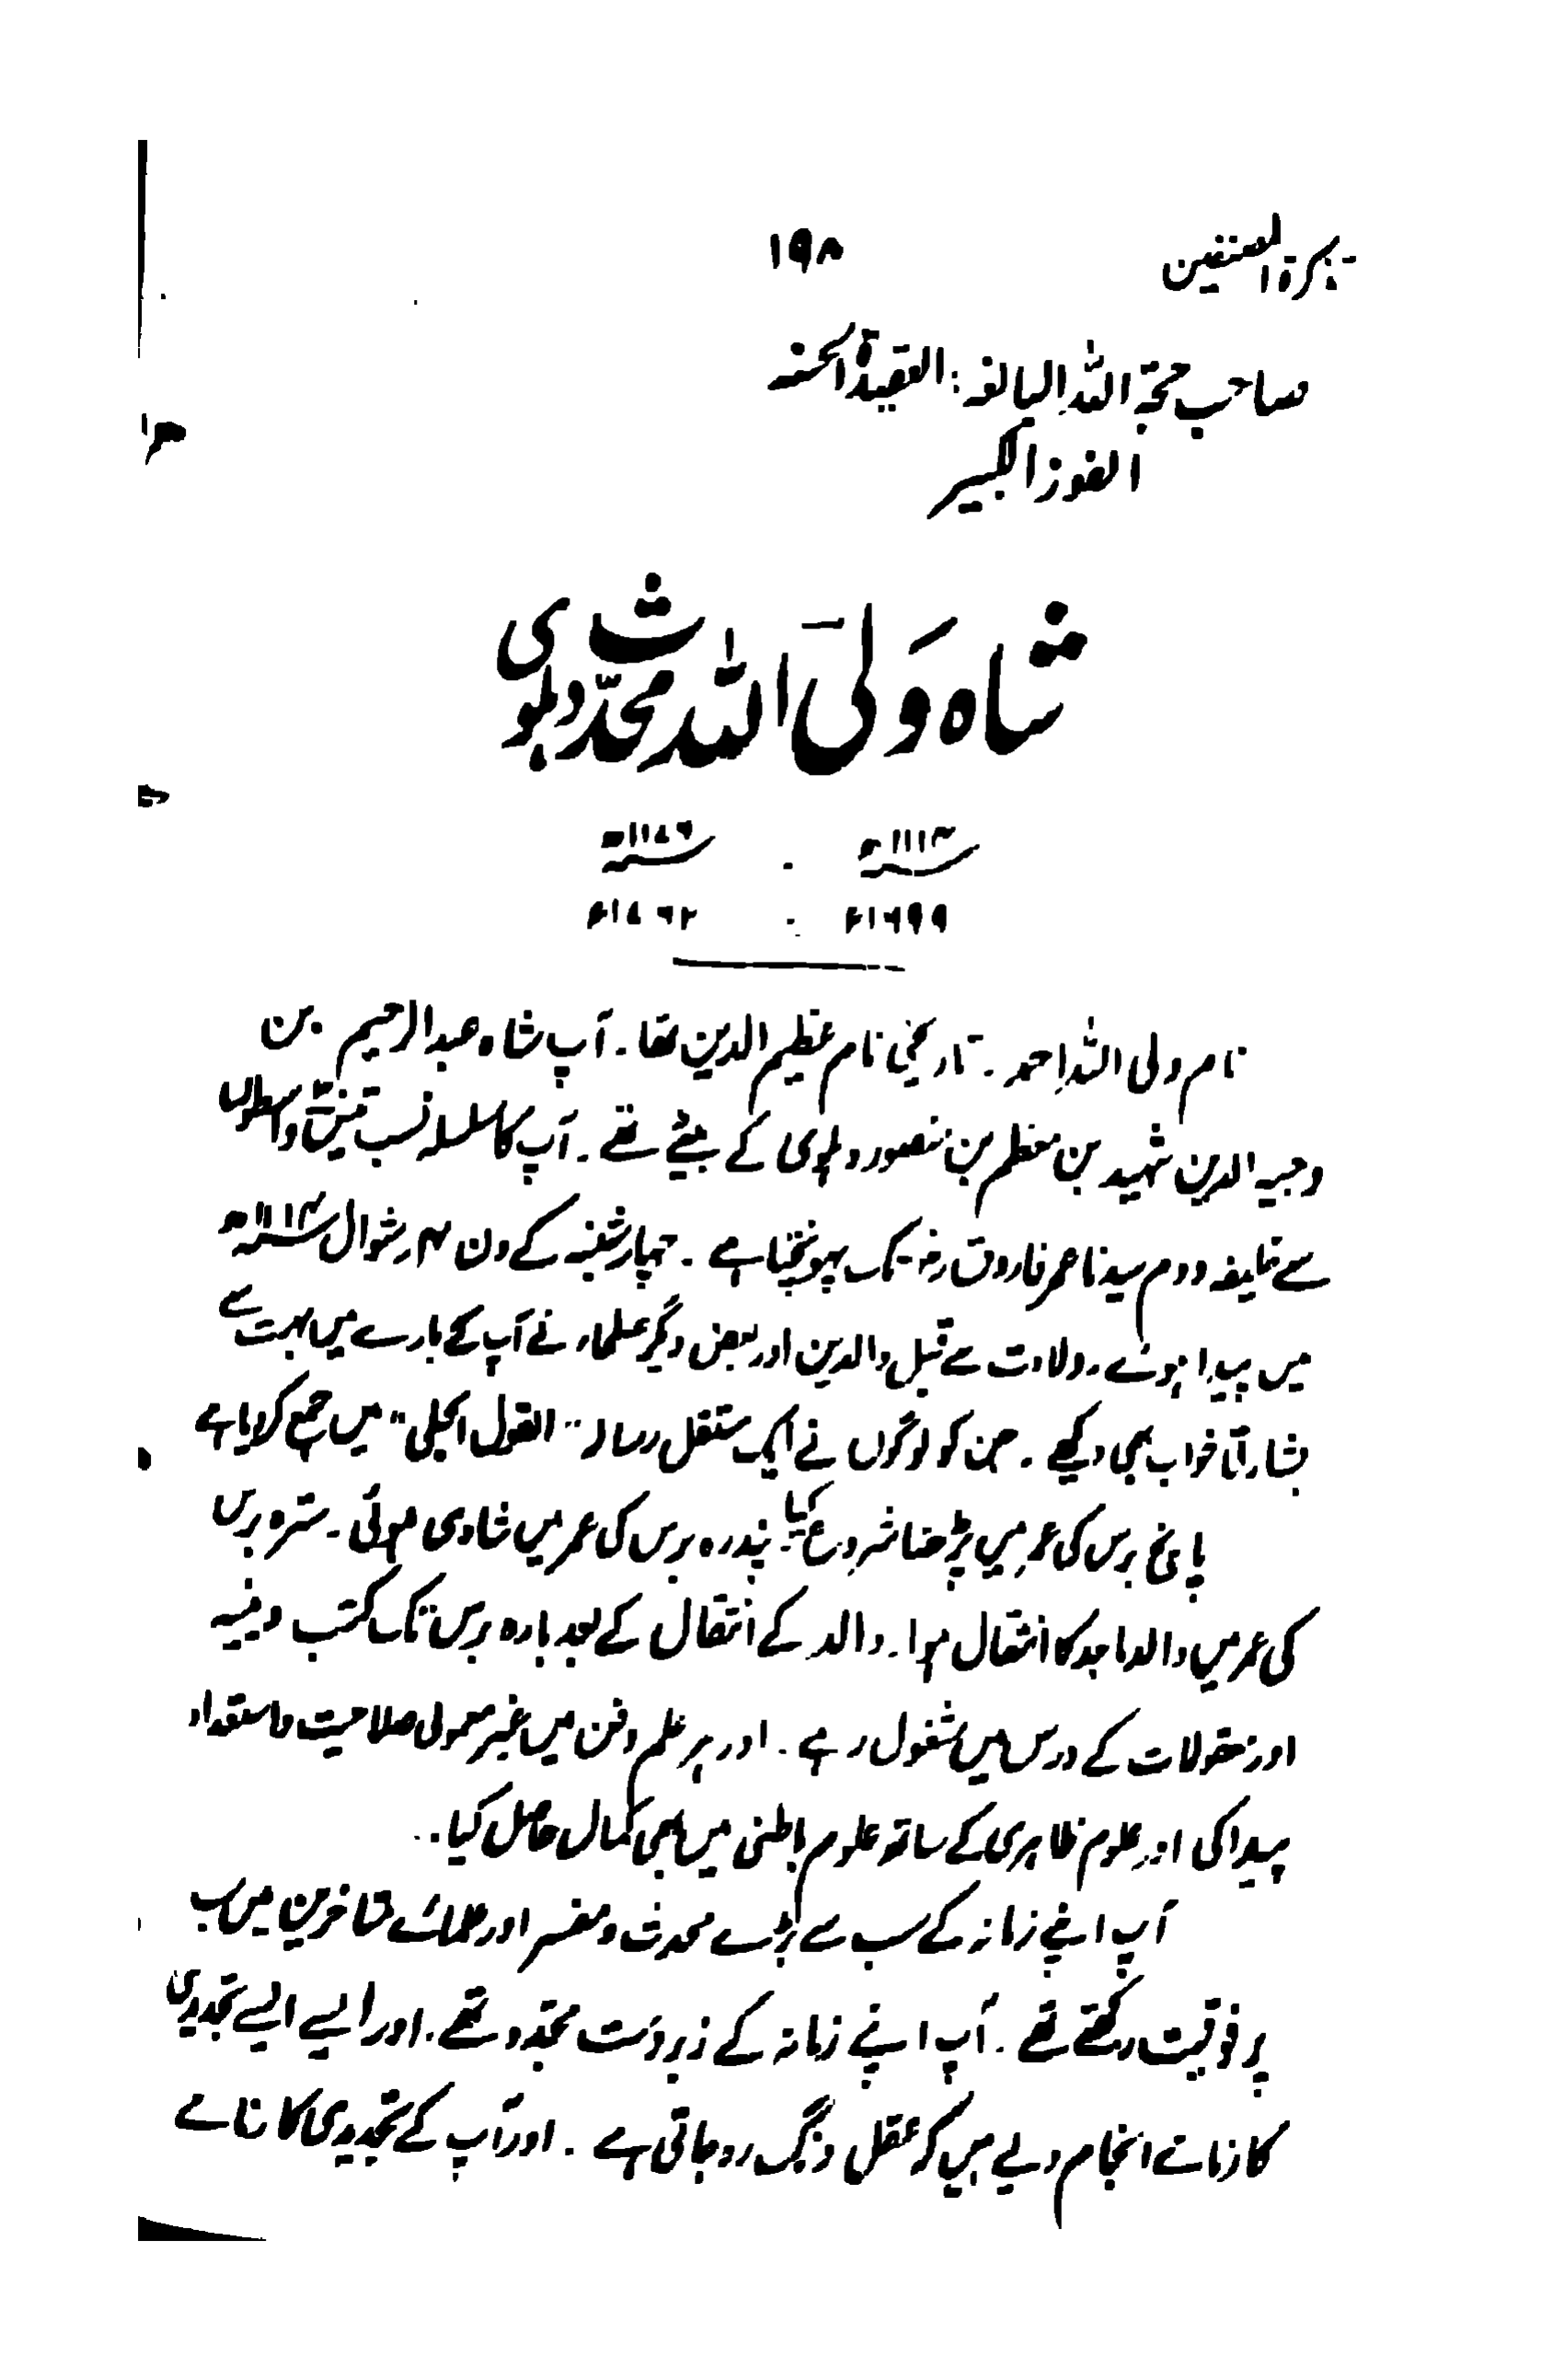 تذکرۃ المصنفین ۱۹۸
صاحب حجۃ اللہ البالغہ : العقیدۃ الحسنہ
الفوز الکبیر
شاہ ولی اللہ محدث دہلوی
۱۱۱۴ھ - ۱۱۷۶ھ
۱۶۹۹ء : ۱۷۶۲ء
نام ولی اللہ احمد ۔ تاریخی نام عظیم الدین تھا ۔ آپ شاہ عبدالرحیم بن
وجیہ الدین شہید بن معظم بن منصور دہلوی کے بیٹے تھے ۔ آپ کا سلسلہ نسب تینتیس واسطوں
سے خلیفہ دوم سیدنا عمر فاروق رضہ تک پہونچتا ہے ۔ چہار شنبہ کے دن ۴ر شوال ۱۱۱۴ھ
میں پیدا ہوئے ۔ ولادت سے قبل والدین اور بعض دیگر علماء نے آپ کے بارے میں بہت سے
بشارتاً خواب بھی دیکھے ۔ جن کو لوگوں نے ایک مستقل رسالہ "القول الجلی" میں جمع کر لیا ہے
پانچ برس کی عمر میں پڑھنا شروع کیا ۔ پندرہ برس کی عمر میں شادی ہوئی ۔ سترہ برس
کی عمر میں والد ماجد کا انتقال ہوا ۔ والد کے انتقال کے بعد بارہ برس تک کتب دینیہ
اور معقولات کے درس میں مشغول رہے ۔ اور ہر علم و فن میں غیر معمولی صلاحیت و استعداد
پیدا کی اور علوم ظاہری کے ساتھ علوم باطنی میں بھی کمال حاصل کیا ۔
آپ اپنے زمانہ کے سب سے بڑے محدث و مفسر اور علمائے متاخرین میں سب
پر فوقیت رکھتے تھے ۔ آپ اپنے زمانہ کے زبردست مجدّد تھے ۔ اور ایسے ایسے تجدیدی
کارنامے انجام دیے ہیں کہ عقل دنگ رہ جاتی ہے ۔ اور آپ کے تجدیدی کارنامے